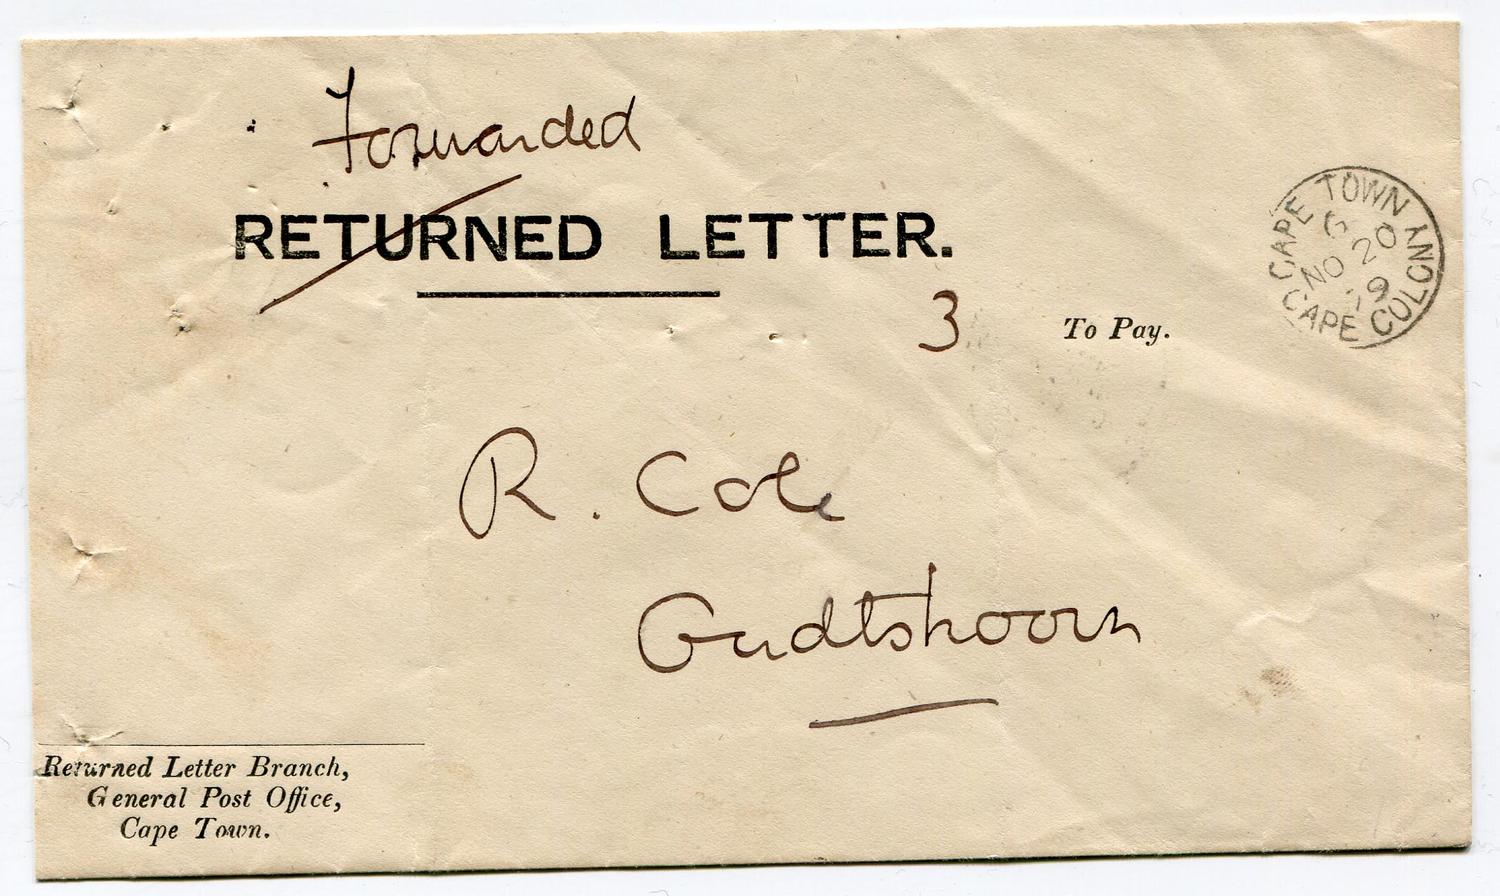 Forwarded
RETURNED LETTER.
3 To Pay.
CAPE TOWN
G
NO 20
9
CAPE COLONY
R. Cole
Oudtshoorn
Returned Letter Branch,
General Post Office,
Cape Town.